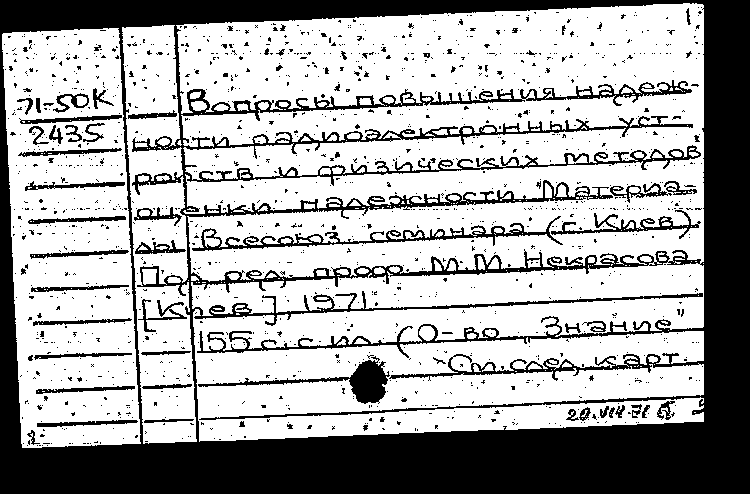 71-50К
2435
Вопросы повышения надеж-
ности радиоэлектронных уст-
ройств и физических методов
оценки надежности. Материа-
лы Всесоюз. семинара (г. Киев).
Под ред. проф. М.М. Некрасова
[Киев], 1971.
155 с. с ил. (О-во „Знание"
См. след. карт.
20.VIII 71